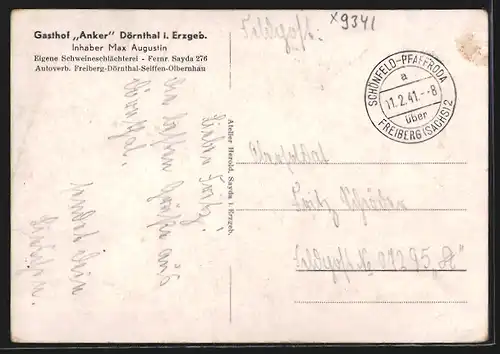 Gasthof „Anker" Dörnthal i. Erzgeb.
Inhaber Max Augustin
Eigene Schweineschlächterei - Fernr. Sayda 276
Autoverb. Freiberg-Dörnthal-Seiffen-Olbernhau
Feldpost.
x9341
SCHÖNFELD-PFAFFRODA
a
11.2.41.-8
über
FREIBERG (SACHS) 2
Atelier Herold, Sayda i. Erzgeb.
Lieber Fritz!
die besten Grüße aus
sendet dein
Fritz
Feldpost N 07295 „A"